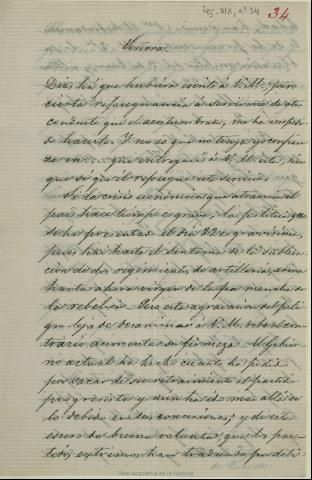 Leg. XIX, nº 34
34
Señora.
Dias há que hubiera escrito á V. M.; pero
cierta repugnancia á servirme de otro
conducto que el acostumbrado, me ha impedi-
do hacerlo. Y no es que no tenga yo confian-
za en .... que entregará á V. M. esta, sino
que sé que él repugna este servicio.
Si la crisis económica que atraviesa el
pais hace tiempo es grave, la politica, que
se ha presentado el dia 22 es gravisima,
pues há hasta el síntoma de la subleva-
cion de dos regimientos de artillería, arma
hasta ahora virgen de la fea mancha de
la rebelion. Pero esta agravacion del peli-
gro lejos de desanimar á V. M. debe al con-
trario aumentar su firmeza. El Gobier-
no actual ha hecho cuanto ha podido
por sacar de su retraimiento al partido
progresista y aun ha ido mas allá de
lo debido en sus concesiones; y de este
exceso de buena voluntad, que los par-
tidos extremos han traducido por debi-
Real Academia de la Historia